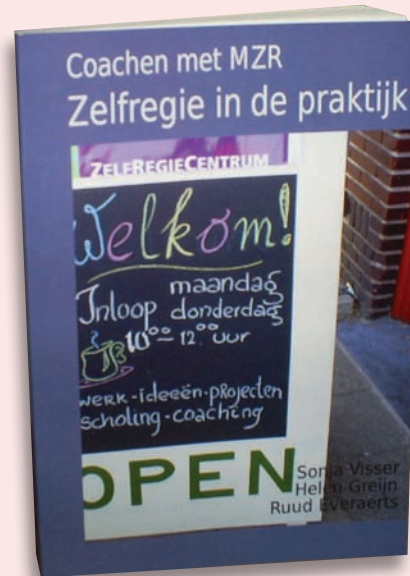 Coachen met MZR
Zelfregie in de praktijk
ZELFREGIECENTRUM
Welkom!
maandag
Inloop donderdag
10⁰⁰ – 12.⁰⁰ uur
werk - ideeën - projecten
scholing - coaching
OPEN
Sonja Visser
Helen Greijn
Ruud Everaerts